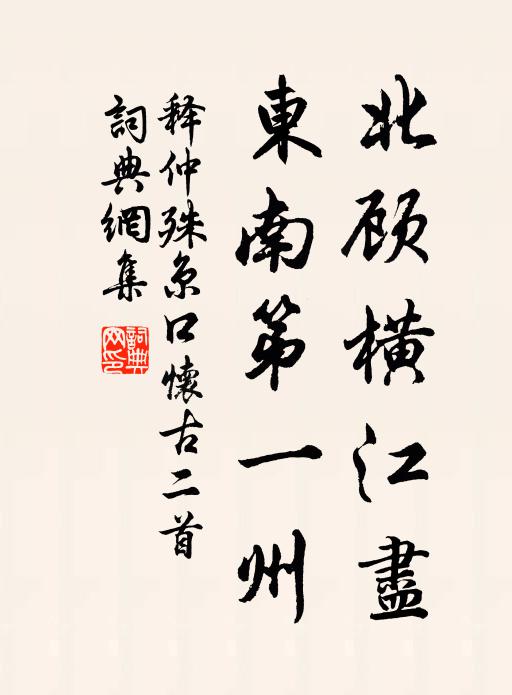 北顾橫江盡
東南第一州
释仲殊京口懷古二首
詞典網集
詞典網印